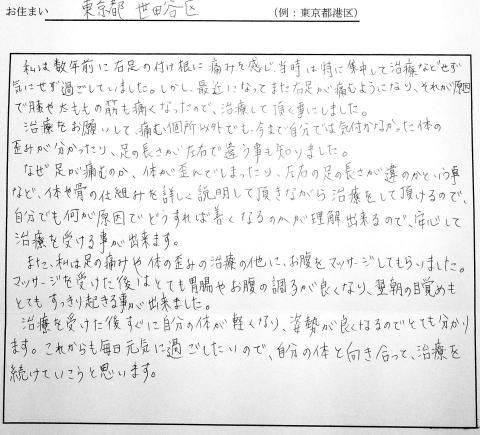 お住まい 東京都 世田谷区 (例:東京都港区)
私は数年前に右足の付け根に痛みを感じ、当時は特に集中して治療などせず
気にせず過ごしていました。しかし、最近になってまた右足が痛むようになり、それが原因
で膝や太ももの筋も痛くなったので、治療して頂く事にしました。
治療をお願いして、痛む個所以外でも、今まで自分では気付かなかった体の
歪みが分かったり、足の長さが左右で違う事も知りました。
なぜ足が痛むのか、体が歪んでしまったり、左右の足の長さが違のかという事
など、体や骨の仕組みを詳しく説明して頂きながら治療をして頂けるので、
自分でも何が原因でどうすれば善くなるのかが理解出来るので、安心して
治療を受ける事が出来ます。
また、私は足の痛みや体の歪みの治療の他に、お腹をマッサージしてもらいました。
マッサージを受けた後はとても胃腸やお腹の調子が良くなり、翌朝の目覚めも
とてもすっきり起きる事が出来ました。
治療を受けた後すぐに自分の体が軽くなり、姿勢が良くなるのでとても分かり
ます。これからも毎日元気に過ごしたいので、自分の体と向き合って、治療を
続けていこうと思います。